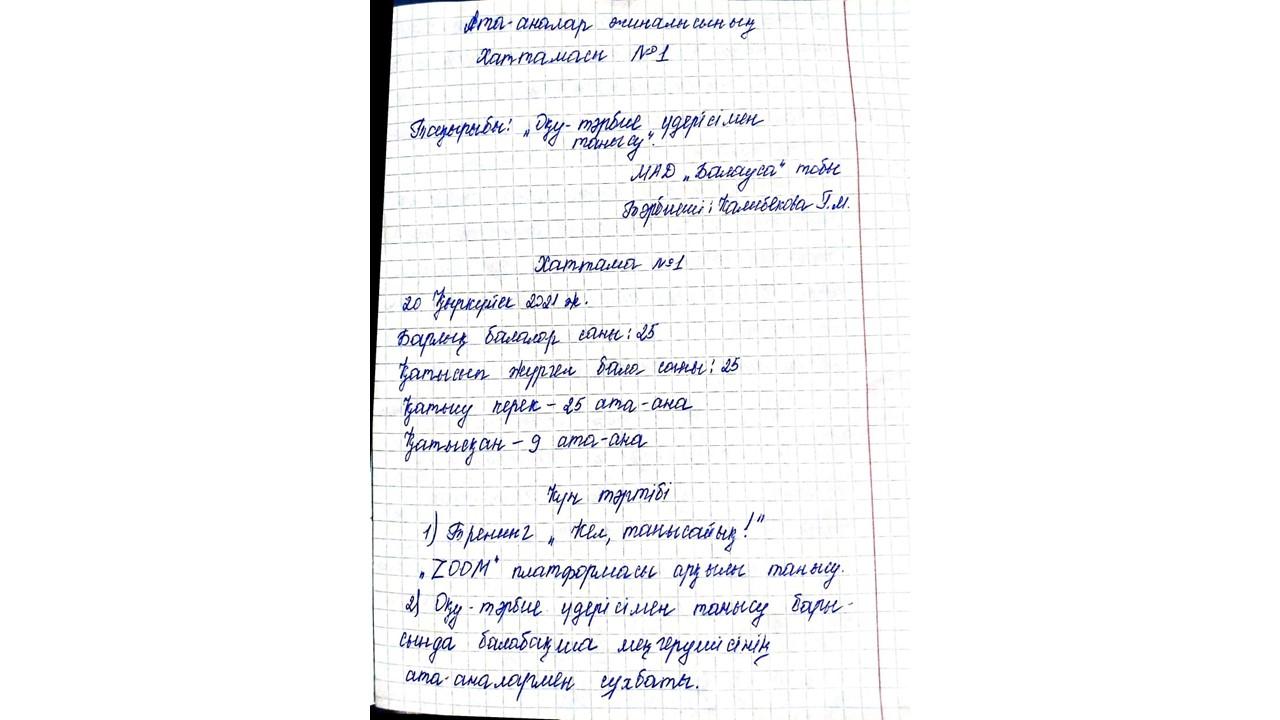 Ата-аналар жиналысының
Хаттамасы №1
Тақырыбы: „Оқу-тәрбие үдерісімен
танысу".
МАД „Балауса" тобы
Тәрбиеші: Калибекова Г.М.
Хаттама №1
20 Қыркүйек 2021 ж.
Барлық балалар саны: 25
Қатысып жүрген бала саны: 25
Қатысу керек – 25 ата-ана
Қатысқан – 9 ата-ана
Күн тәртібі
1) Тренинг „Кел, танысайық!"
„ZOOM" платформасы арқылы танысу.
2) Оқу-тәрбие үдерісімен танысу бары-
сында балабақша меңгерушісінің
ата-аналармен сұхбаты.